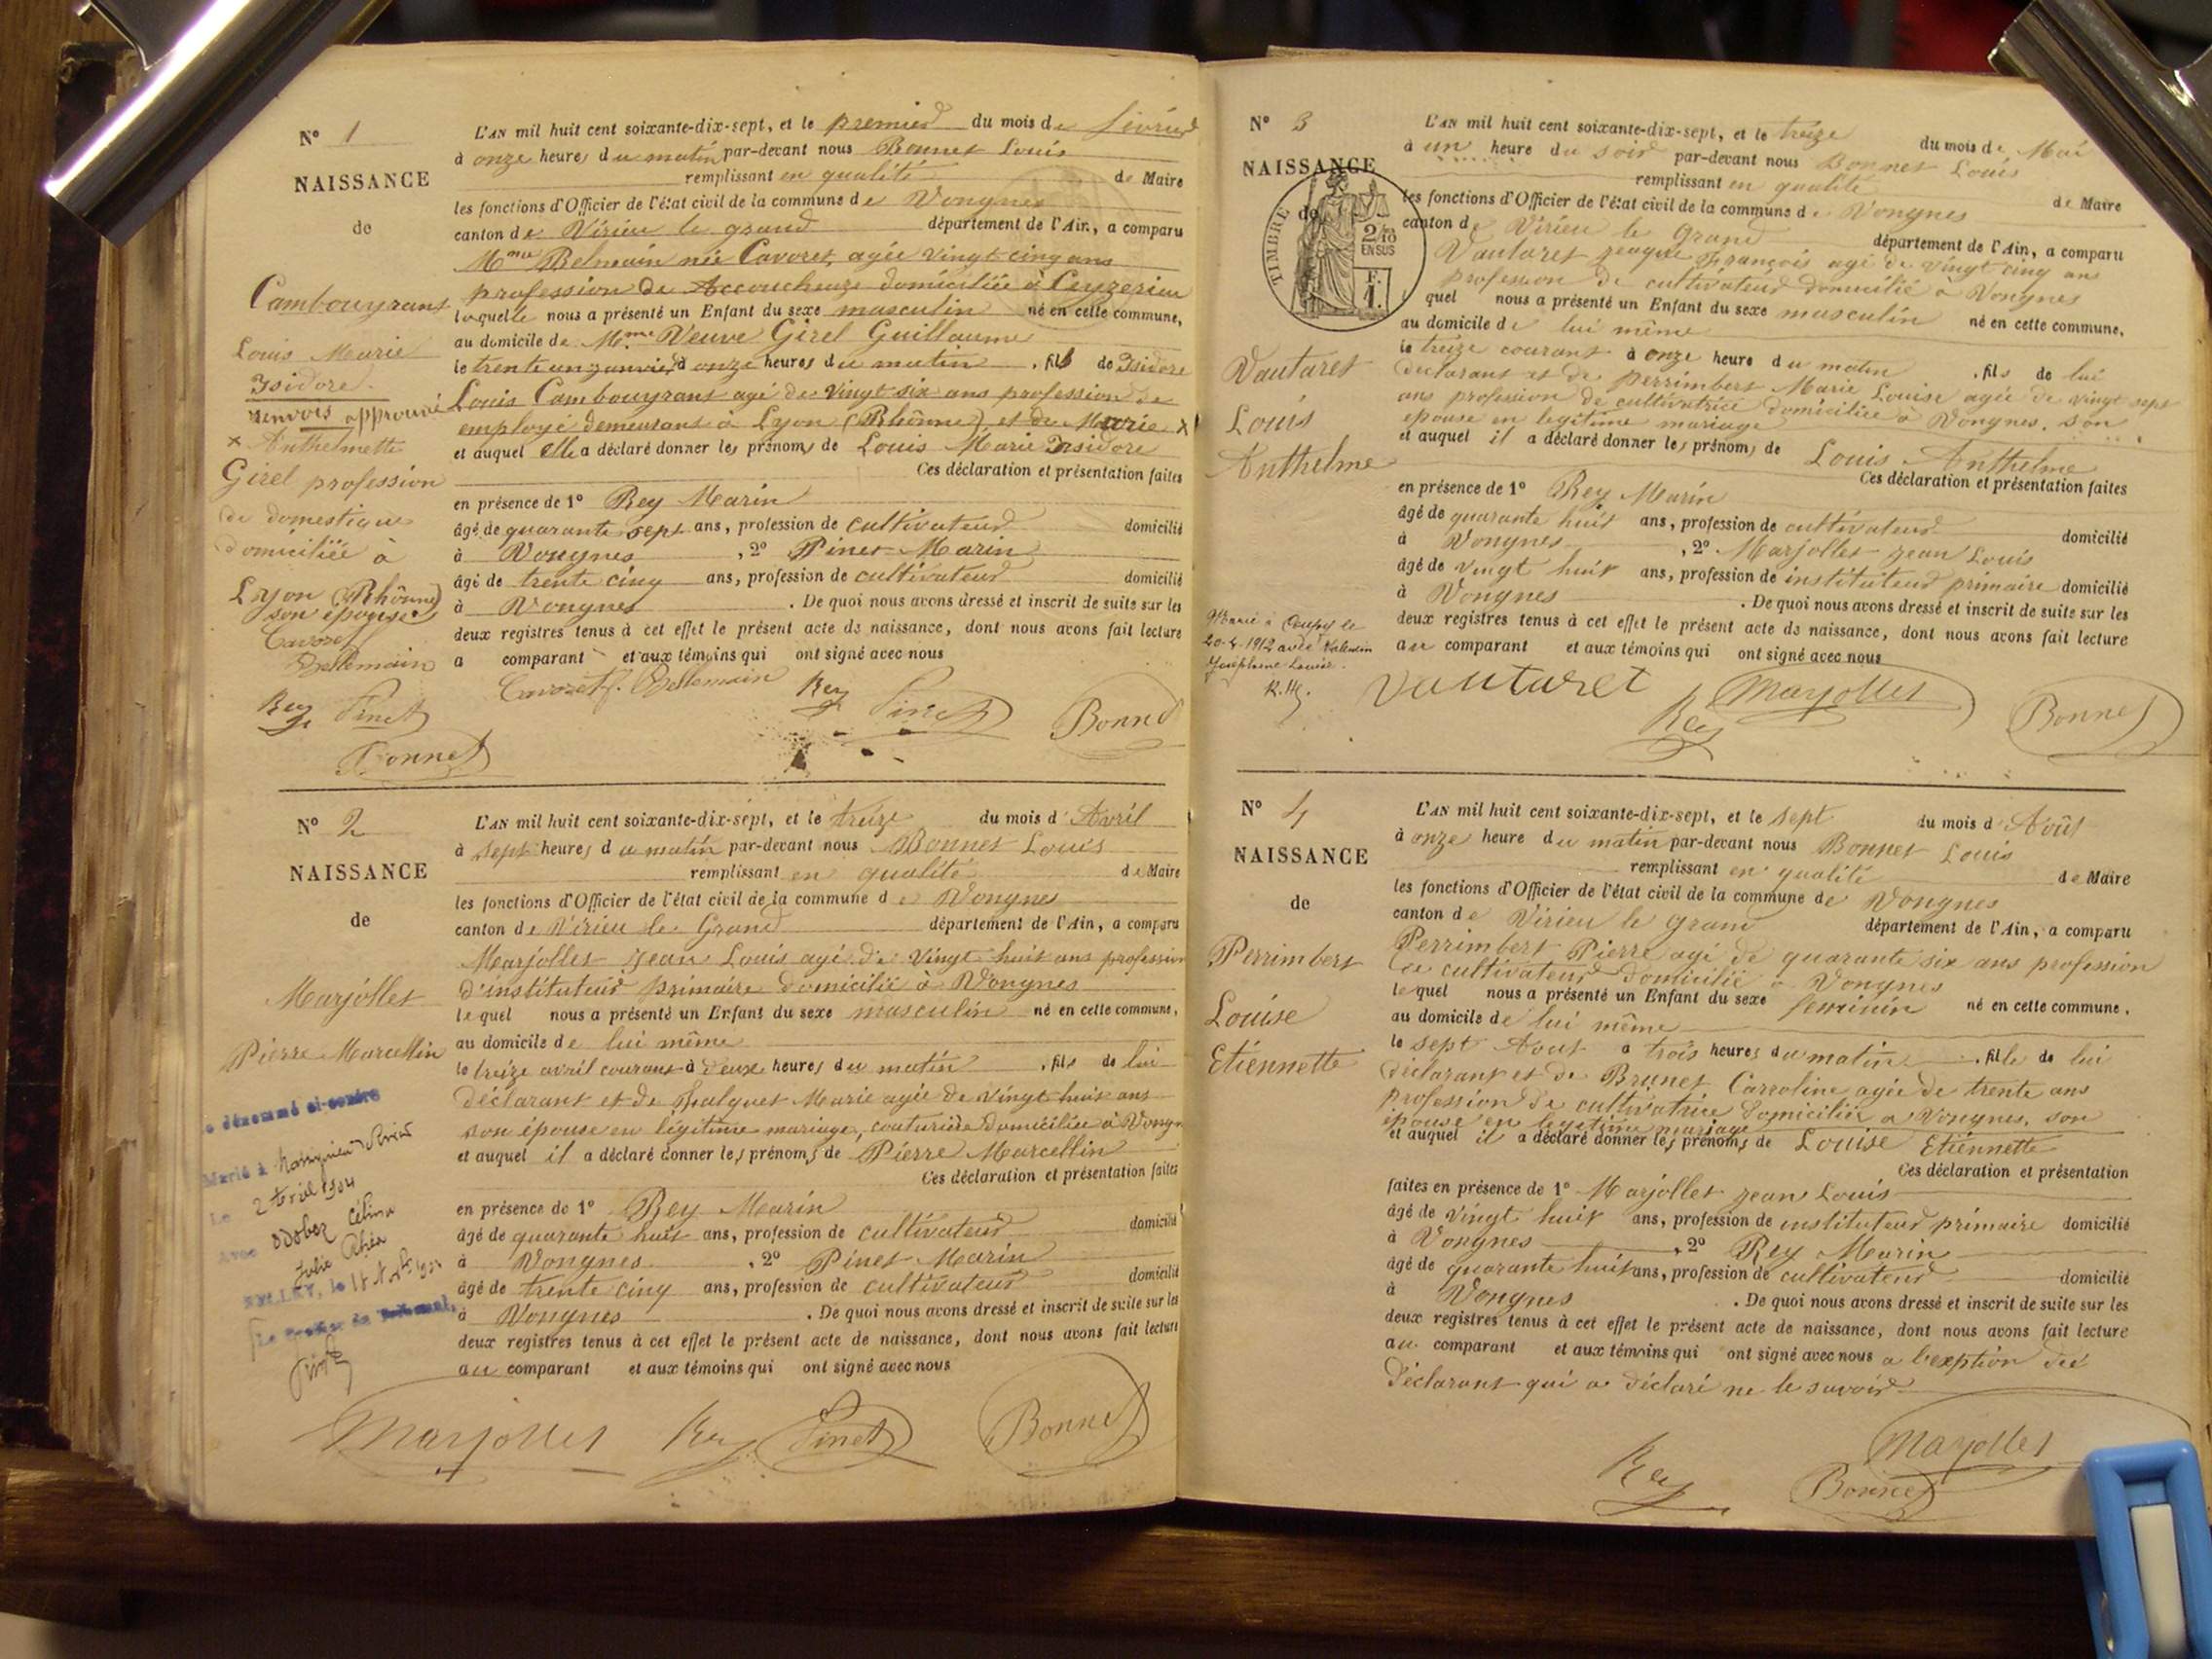 N° 1
NAISSANCE
de
Cambouyrans
Louis Marie
Isidore
renvois approuvé
x Anthelmette
Girel profession
de domestique
domiciliée à
Lyon (Rhônne)
son épouse
Cavoret
Bellemain
Rey Pinet
Bonnet
L'AN mil huit cent soixante-dix-sept, et le premier du mois de février
à onze heures du matin par-devant nous Bonnet Louis
remplissant en qualité de Maire
les fonctions d'Officier de l'état civil de la commune de Vongnes
canton de Virieu le grand département de l'Ain, a comparu
Mme Belmain née Cavoret, agée vingt cinq ans
profession de Accoucheuze domiciliée à Ceyzerieu
laquelle nous a présenté un Enfant du sexe masculin né en cette commune,
au domicile de Mme Veuve Girel Guillaume
le trente un janvier à onze heures du matin, fils de Isidore
Louis Cambouyrans agé de vingt six ans profession de
employé demeurant à Lyon (Rhônne) et de Marie x
et auquel elle a déclaré donner les prénoms de Louis Marie Isidore
Ces déclaration et présentation faites
en présence de 1° Rey Marin
âgé de quarante sept ans, profession de cultivateur domicilié
à Vongnes, 2° Pinet Marin
âgé de trente cinq ans, profession de cultivateur domicilié
à Vongnes. De quoi nous avons dressé et inscrit de suite sur les
deux registres tenus à cet effet le présent acte de naissance, dont nous avons fait lecture
a comparant et aux témoins qui ont signé avec nous
Cavoret f. Bellemain Rey Pinet Bonnet
N° 2
NAISSANCE
de
Marjollet
Pierre Marcellin
Le dénommé ci-contre
Marié à
Le 2 1904
avec Célina
Julie
BELLEY, le
L'AN mil huit cent soixante-dix-sept, et le treize du mois d'Avril
à sept heures du matin par-devant nous Bonnet Louis
remplissant en qualité de Maire
les fonctions d'Officier de l'état civil de la commune de Vongnes
canton de Virieu le Grand département de l'Ain, a comparu
Marjollet Jean Louis agé de vingt huit ans profession
d'instituteur primaire domicilié à Vongnes
lequel nous a présenté un Enfant du sexe masculin né en cette commune,
au domicile de lui même
le treize avril courant à deux heures du matin, fils de lui
déclarant et de Marie agée de vingt huit ans
son épouse en légitime mariage, couturière domiciliée à Vongn
et auquel il a déclaré donner les prénoms de Pierre Marcellin
Ces déclaration et présentation faites
en présence de 1° Rey Marin
âgé de quarante huit ans, profession de cultivateur domicilié
à Vongnes, 2° Pinet Marin
âgé de trente cinq ans, profession de cultivateur domicilié
à Vongnes. De quoi nous avons dressé et inscrit de suite sur les
deux registres tenus à cet effet le présent acte de naissance, dont nous avons fait lecture
au comparant et aux témoins qui ont signé avec nous
Marjollet Rey Pinet Bonnet
N° 3
NAISSANCE
de
TIMBRE
2/10
EN SUS
F.
1.
Vautaret
Louis
Anthelme
Marié à le
20-4-1912 avec
Joséphine Louise.
L'AN mil huit cent soixante-dix-sept, et le treize du mois de Mai
à un heure du soir par-devant nous Bonnet Louis
remplissant en qualité de Maire
les fonctions d'Officier de l'état civil de la commune de Vongnes
canton de Virieu le Grand département de l'Ain, a comparu
Vautaret Jeaque François agé de vingt cinq ans
profession de cultivateur domicilié à Vongnes
quel nous a présenté un Enfant du sexe masculin né en cette commune,
au domicile de lui même
le treize courant à onze heure du matin, fils de lui
déclarant et de Perrimbert Marie Louise agée de vingt sept
ans profession de cultivatrice domiciliée à Vongnes, son
épouse en légitime mariage
et auquel il a déclaré donner les prénoms de Louis Anthelme
Ces déclaration et présentation faites
en présence de 1° Rey Marin
âgé de quarante huit ans, profession de cultivateur domicilié
à Vongnes, 2° Marjollet Jean Louis
âgé de vingt huit ans, profession de instituteur primaire domicilié
à Vongnes. De quoi nous avons dressé et inscrit de suite sur les
deux registres tenus à cet effet le présent acte de naissance, dont nous avons fait lecture
au comparant et aux témoins qui ont signé avec nous
Vautaret Rey Marjollet Bonnet
N° 4
NAISSANCE
de
Perrimbert
Louise
Etiennette
L'AN mil huit cent soixante-dix-sept, et le sept du mois d'Août
à onze heure du matin par-devant nous Bonnet Louis
remplissant en qualité de Maire
les fonctions d'Officier de l'état civil de la commune de Vongnes
canton de Virieu le Grand département de l'Ain, a comparu
Perrimbert Pierre agé de quarante six ans profession
de cultivateur domicilié à Vongnes
lequel nous a présenté un Enfant du sexe feminin né en cette commune,
au domicile de lui même
le sept Aout a trois heures du matin, fille de lui
déclarant et de Brunet Carroline agée de trente ans
profession de cultivatrice domiciliée a Vongnes, son
épouse en légitime mariage
et auquel il a déclaré donner les prénoms de Louise Etiennette
Ces déclaration et présentation
faites en présence de 1° Marjollet Jean Louis
âgé de vingt huit ans, profession de instituteur primaire domicilié
à Vongnes, 2° Rey Marin
âgé de quarante huit ans, profession de cultivateur domicilié
à Vongnes. De quoi nous avons dressé et inscrit de suite sur les
deux registres tenus à cet effet le présent acte de naissance, dont nous avons fait lecture
au comparant et aux témoins qui ont signé avec nous a l'exeption du
déclarant qui a déclaré ne le savoir
Marjollet
Rey Bonnet